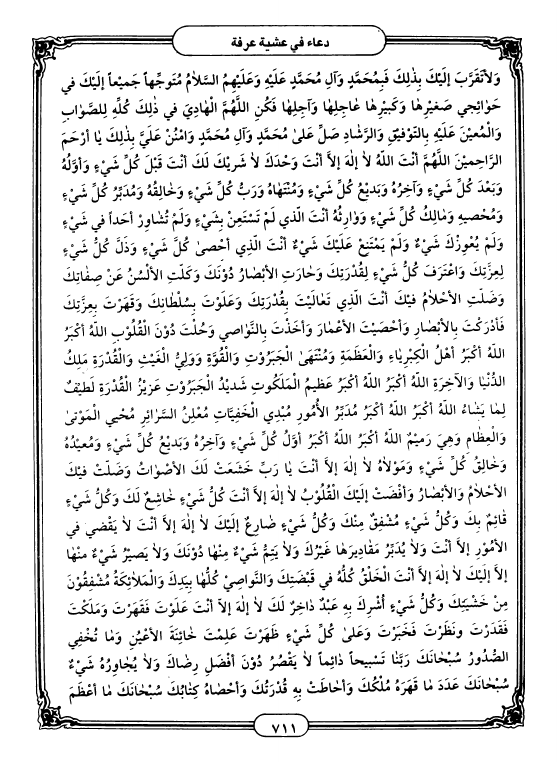 دعاء في عشية عرفة
وَلأتَقَرَّبَ إلَيْكَ بِذٰلِكَ فَبِمُحَمَّدٍ وَآلِ مُحَمَّدٍ عَلَيْهِ وَعَلَيْهِمُ السَّلاٰمُ مُتَوَجِّهاً جَميْعاً إلَيْكَ في
حَوٰائِجي صَغيْرِهٰا وَكَبيْرِهٰا عٰاجِلِهٰا وَآجِلِهٰا فَكُنِ اللَّهُمَّ الْهٰادِيَ في ذٰلِكَ كُلِّهِ لِلصَّوٰابِ
وَالْمُعيْنَ عَلَيْهِ بِالتَّوْفيْقِ وَالرَّشٰادِ صَلِّ عَلىٰ مُحَمَّدٍ وَآلِ مُحَمَّدٍ وَامْنُنْ عَلَيَّ بِذٰلِكَ يٰا أرْحَمَ
الرّٰاحِميْنَ اللَّهُمَّ أنْتَ اللّٰهُ لاٰ إلٰهَ إلاّٰ أنْتَ وَحْدَكَ لاٰ شَريْكَ لَكَ أنْتَ قَبْلَ كُلِّ شَيْءٍ وَأوَّلُهُ
وَبَعْدَ كُلِّ شَيْءٍ وَآخِرُهُ وَبَديْعُ كُلِّ شَيْءٍ وَمُنْتَهٰاهُ وَرَبُّ كُلِّ شَيْءٍ وَخٰالِقُهُ وَمُدَبِّرُ كُلِّ شَيْءٍ
وَمُحْصيهِ وَمٰالِكُ كُلِّ شَيْءٍ وَوٰارِثُهُ أنْتَ الَّذي لَمْ تَسْتَعِنْ بِشَيْءٍ وَلَمْ تُشٰاوِرْ أحَداً في شَيْءٍ
وَلَمْ يُعْوِزْكَ شَيْءٌ وَلَمْ يَمْتَنِعْ عَلَيْكَ شَيْءٌ أنْتَ الَّذي أحْصىٰ كُلَّ شَيْءٍ وَذَلَّ كُلُّ شَيْءٍ
لِعِزَّتِكَ وَاعْتَرَفَ كُلُّ شَيْءٍ لِقُدْرَتِكَ وَحٰارَتِ الأبْصٰارُ دُوْنَكَ وَكَلَّتِ الألْسُنُ عَنْ صِفٰاتِكَ
وَضَلَّتِ الأحْلاٰمُ فيْكَ أنْتَ الَّذي تَعٰالَيْتَ بِقُدْرَتِكَ وَعَلَوْتَ بِسُلْطٰانِكَ وَقَهَرْتَ بِعِزَّتِكَ
فَأدْرَكْتَ بِالأبْصٰارِ وَأحْصَيْتَ الأعْمٰارَ وَأخَذْتَ بِالنَّوٰاصي وَحُلْتَ دُوْنَ الْقُلُوْبِ اللّٰهُ أكْبَرُ
اللّٰهُ أكْبَرُ أهْلُ الْكِبْرِيٰاءِ وَالْعَظَمَةِ وَمُنْتَهَىٰ الْجَبَرُوْتِ وَالْقُوَّةِ وَوَلِيُّ الْغَيْثِ وَالْقُدْرَةِ مَلِكُ
الدُّنْيٰا وَالآخِرَةِ اللّٰهُ أكْبَرُ اللّٰهُ أكْبَرُ عَظيمُ الْمَلَكُوتِ شَديْدُ الْجَبَرُوْتِ عَزيْزُ الْقُدْرَةِ لَطيْفٌ
لِمٰا يَشٰاءُ اللّٰهُ أكْبَرُ اللّٰهُ أكْبَرُ مُدَبِّرُ الأُمُورِ مُبْدِي الْخَفِيّٰاتِ مُعْلِنُ السَّرٰائِرِ مُحْيي الْمَوْتىٰ
وَالْعِظٰامِ وَهِيَ رَميْمٌ اللّٰهُ أكْبَرُ اللّٰهُ أكْبَرُ أوَّلُ كُلِّ شَيْءٍ وَآخِرُهُ وَبَديْعُ كُلِّ شَيْءٍ وَمُعيْدُهُ
وَخٰالِقُ كُلِّ شَيْءٍ وَمَوْلاٰهُ لاٰ إلٰهَ إلاّٰ أنْتَ يٰا رَبِّ خَشَعَتْ لَكَ الأصْوٰاتُ وَضَلَّتْ فيْكَ
الأحْلاٰمُ وَالأبْصٰارُ وَأفْضَتْ إلَيْكَ الْقُلُوْبُ لاٰ إلٰهَ إلاّٰ أنْتَ كُلُّ شَيْءٍ خٰاشِعٌ لَكَ وَكُلُّ شَيْءٍ
قٰائِمٌ بِكَ وَكُلُّ شَيْءٍ مُشْفِقٌ مِنْكَ وَكُلُّ شَيْءٍ ضٰارِعٌ إلَيْكَ لاٰ إلٰهَ إلاّٰ أنْتَ لاٰ يَقْضي في
الأُمُوْرِ إلاّٰ أنْتَ وَلاٰ يُدَبِّرُ مَقٰاديْرَهٰا غَيْرُكَ وَلاٰ يَتِمُّ شَيْءٌ مِنْهٰا دُوْنَكَ وَلاٰ يَصيْرُ شَيْءٌ مِنْهٰا
إلاّٰ إلَيْكَ لاٰ إلٰهَ إلاّٰ أنْتَ الْخَلْقُ كُلُّهُ في قَبْضَتِكَ وَالنَّوٰاصي كُلُّهٰا بِيَدِكَ وَالْمَلاٰئِكَةُ مُشْفِقُوْنَ
مِنْ خَشْيَتِكَ وَكُلُّ شَيْءٍ أُشْرِكَ بِهِ عَبْدٌ دٰاخِرٌ لَكَ لاٰ إلٰهَ إلاّٰ أنْتَ عَلَوْتَ فَقَهَرْتَ وَمَلَكْتَ
فَقَدَرْتَ ونَظَرْتَ فَخَبَرْتَ وَعَلىٰ كُلِّ شَيْءٍ ظَهَرْتَ عَلِمْتَ خٰائِنَةَ الأعْيُنِ وَمٰا تُخْفِي
الصُّدُورُ سُبْحٰانَكَ رَبَّنٰا تَسْبيحاً دٰائِماً لاٰ يَقْصُرُ دُوْنَ أفْضَلِ رِضٰاكَ وَلاٰ يُجٰاوِرُهُ شَيْءٌ
سُبْحٰانَكَ عَدَدَ مٰا قَهَرَهُ مُلْكُكَ وَأحٰاطَتْ بِهِ قُدْرَتُكَ وَأحْصٰاهُ كِتٰابُكَ سُبْحٰانَكَ مٰا أعْظَمَ
٧١١